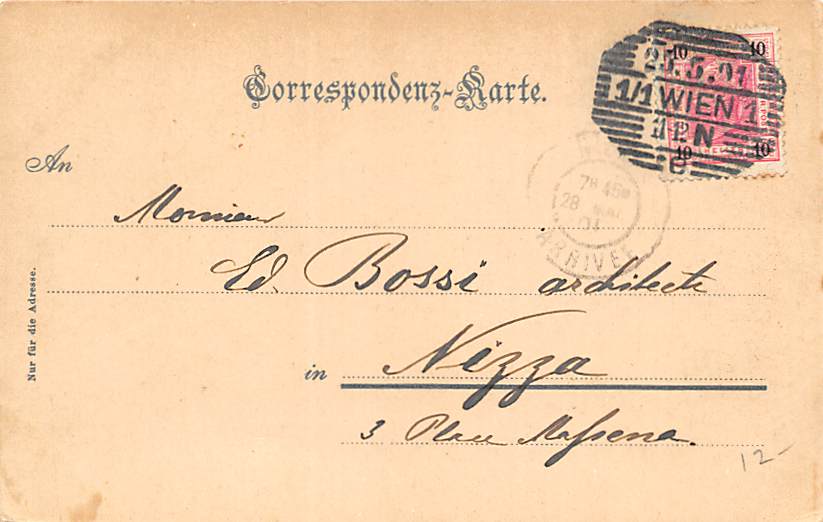 Correspondenz-Karte.
10 10
25.5.01
1/1 WIEN 1
11 12 N
10 10
C
7H 45M
28 MAI
01
ARRIVÉE
An
Monsieur
Ed. Bossi architecte
in Nizza
3 Place Massena.
Nur für die Adresse.
12-